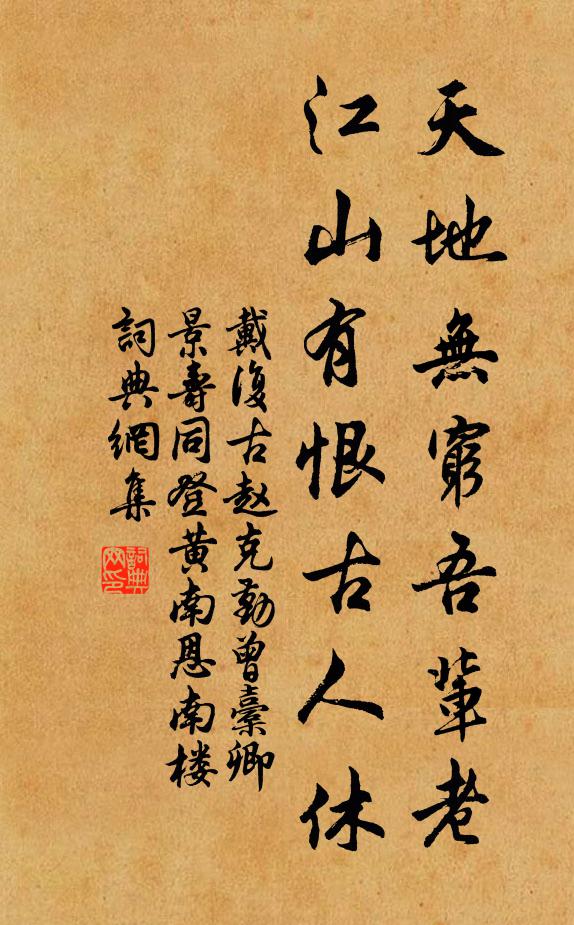 天地無窮吾輩老
江山有恨古人休
戴復古赵克勤曾橐卿
景壽同登黄南恩南楼
詞典網集
詞典網印